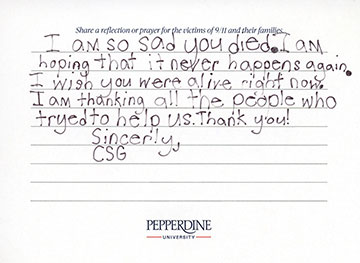 Share a reflection or prayer for the victims of 9/11 and their families.
I am so sad you died. I am
hoping that it never happens again.
I wish you were alive right now.
I am thanking all the people who
tryed to help us. Thank you!
Sincerily,
CSG
PEPPERDINE
UNIVERSITY